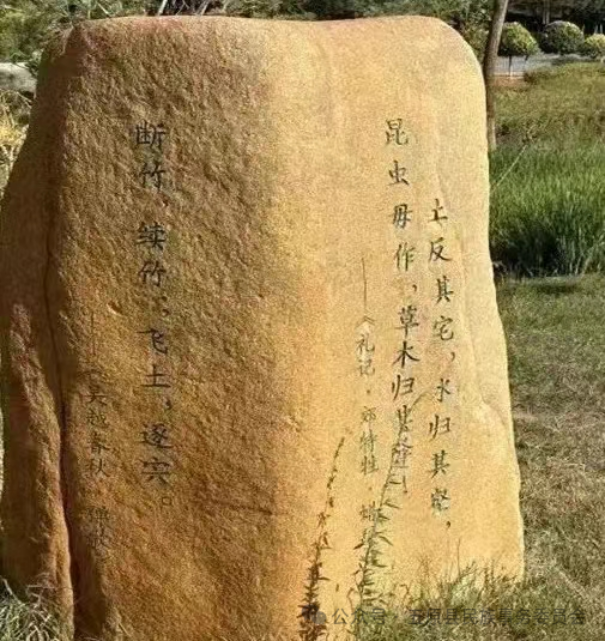 土反其宅,水归其壑,
昆虫毋作,草木归其泽!
——《礼记·郊特牲·蜡
断竹,续竹;飞土,逐宍。
——《吴越春秋·弹歌》
公众号 · 五原县民族事务委员会